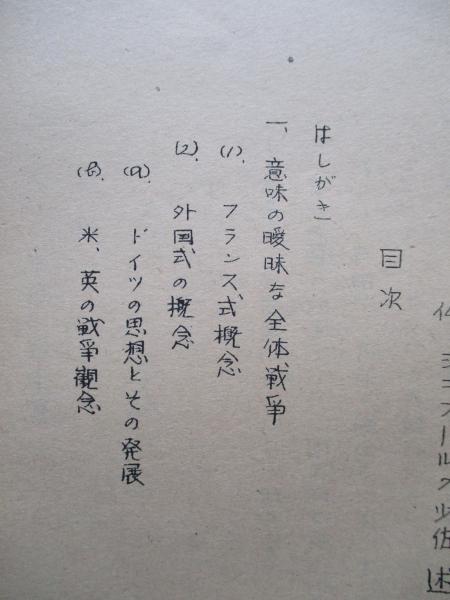 目次
はしがき
一、意味の曖昧な全体戦争
(1). フランス式概念
(2). 外国式の概念
(a). ドイツの思想とその発展
(b). 米、英の戦争観念